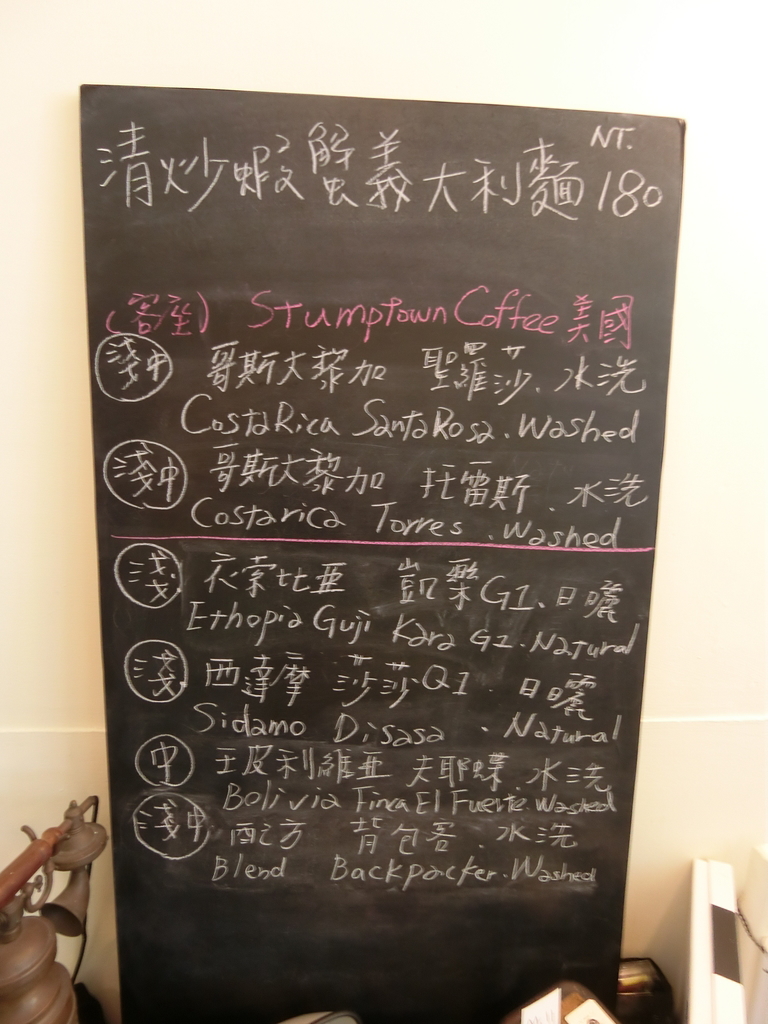 清炒蝦蟹義大利麵 NT. 180
(客座) Stumptown Coffee 美國
淺中 哥斯大黎加 聖羅莎.水洗
Costa Rica Santa Rosa. Washed
淺中 哥斯大黎加 托雷斯.水洗
Costarica Torres. Washed
淺 衣索比亞 凱樂G1.日曬
Ethopia Guji Kara G1. Natural
淺 西達摩 莎莎Q1.日曬
Sidamo Disasa. Natural
中 玻利維亞 夫耶蝶.水洗
Bolivia Finca El Fuerte. Washed
淺中 配方 背包客.水洗
Blend Backpacker. Washed